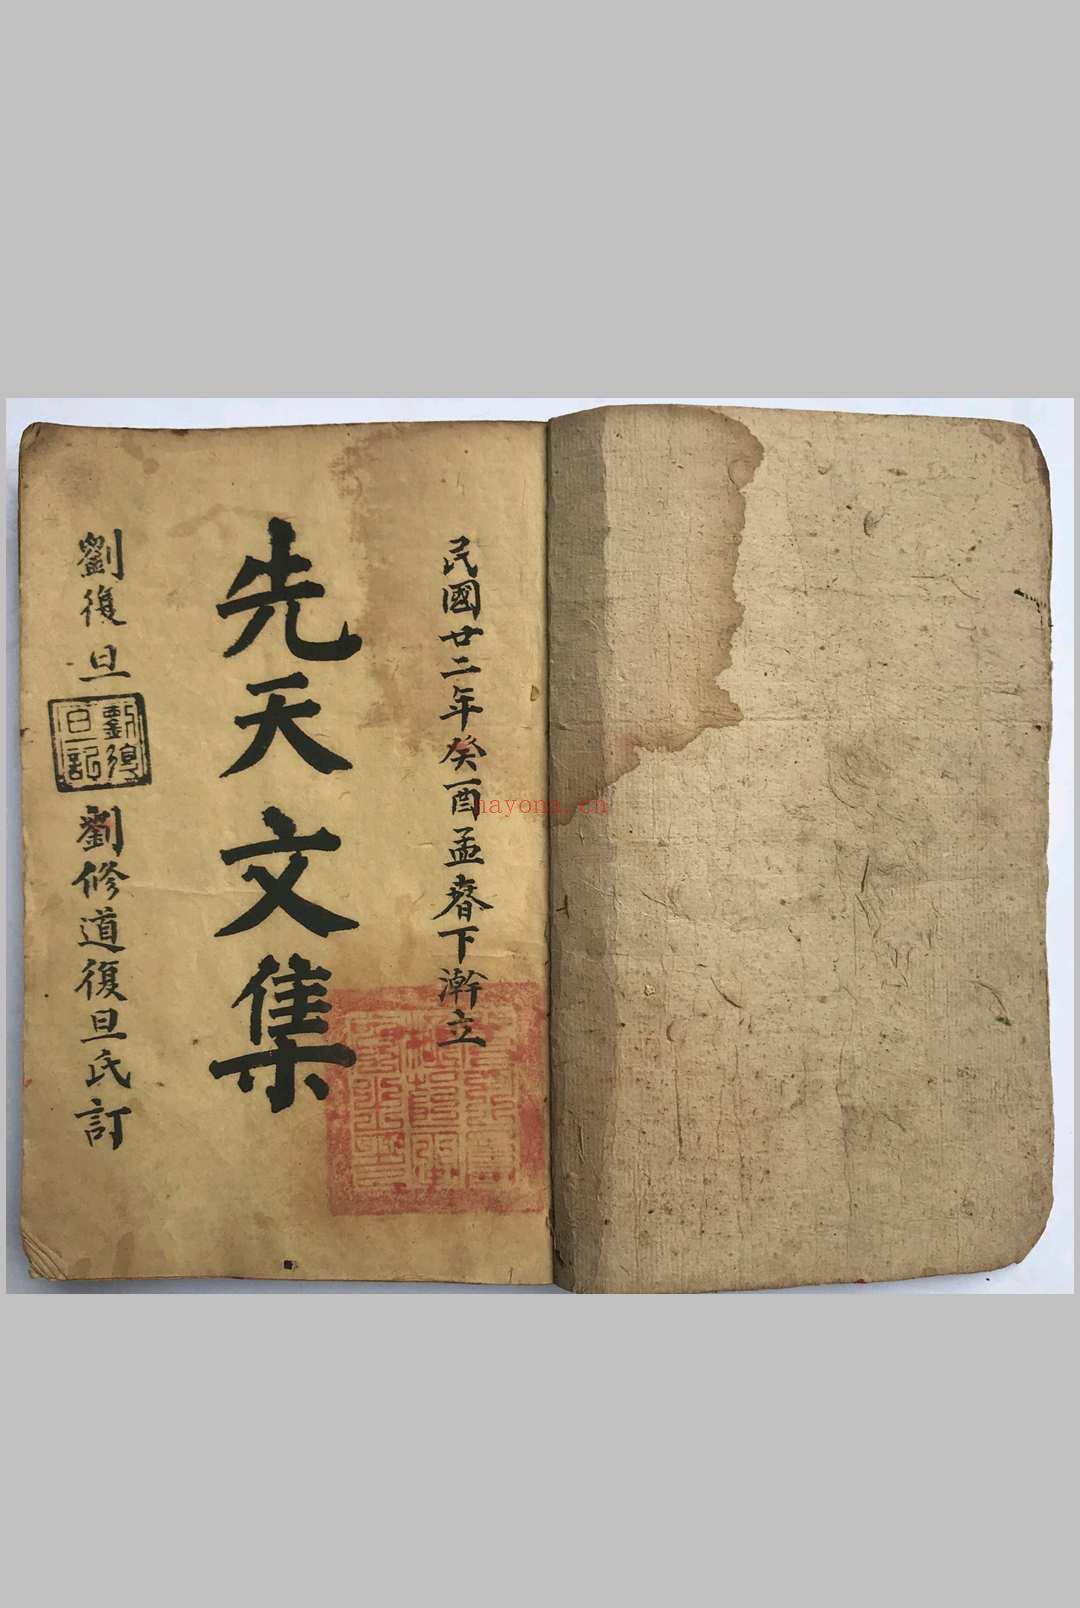 民國廿二年癸酉孟春下澣立
先天文集
劉復旦
劉復旦記
劉修道復旦氏訂
nayona.cn